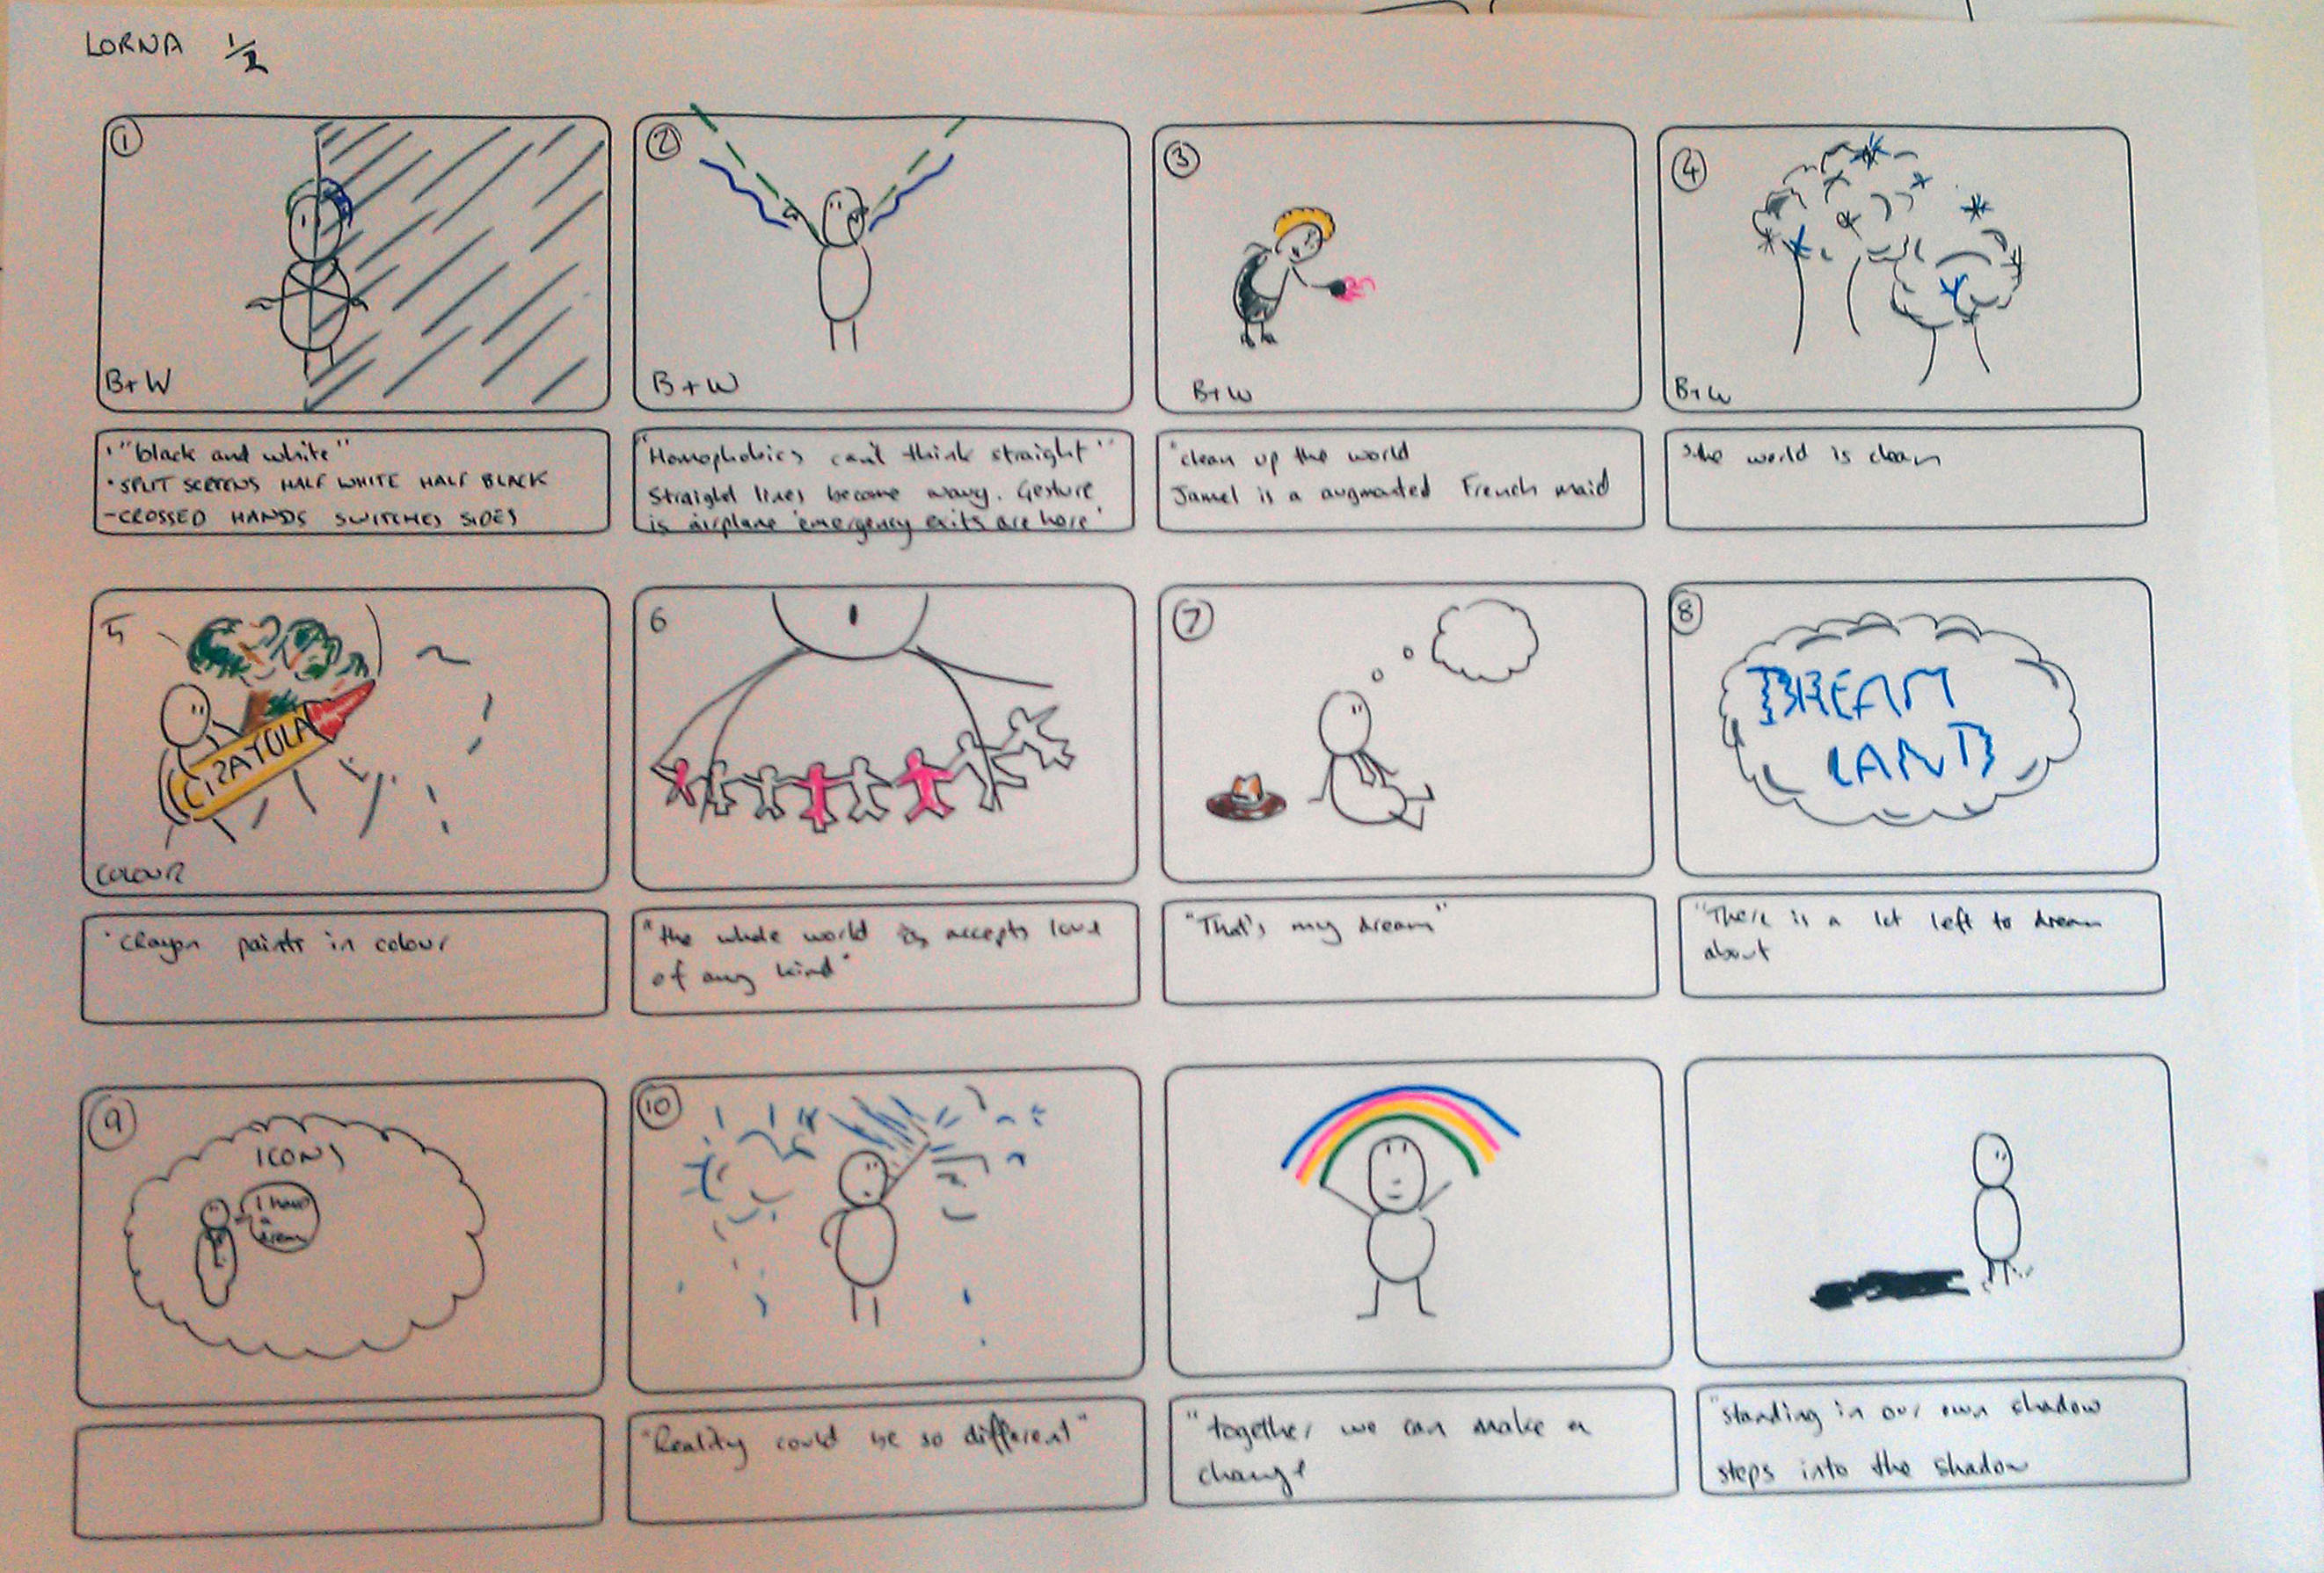 LORNA 1/2
1
B+W
"black and white"
• SPLIT SCREENS HALF WHITE HALF BLACK
- CROSSED HANDS SWITCHES SIDES
2
B+W
"Homophobics can't think straight"
Straight lines become wavy. Gesture
is airplane 'emergency exits are here'
3
B+W
"clean up the world
Jamel is a augmented French maid
4
B+W
the world is clean
5
CRAYOLA
COLOUR
• crayon paints in colour
6
"the whole world accepts love
of any kind"
7
"That's my dream"
8
DREAM
LAND
"There is a lot left to dream
about
9
ICONS
I have
a
dream
10
"Reality could be so different"
"together we can make a
change
"standing in our own shadow
steps into the shadow